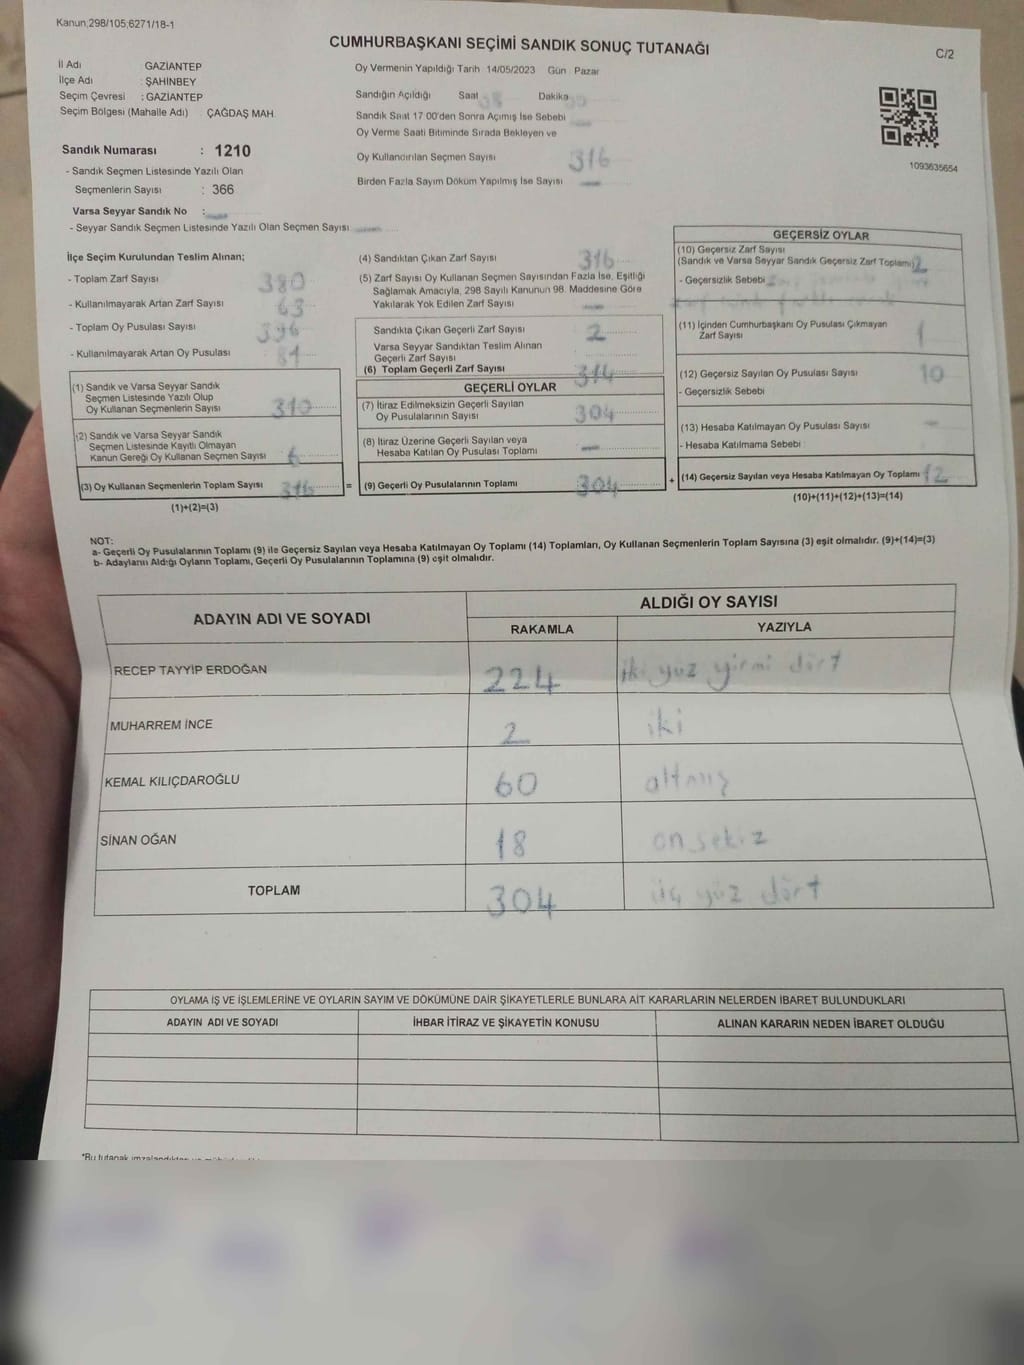 Kanun;298/105;6271/18-1
CUMHURBAŞKANI SEÇİMİ SANDIK SONUÇ TUTANAĞI
C/2
İl Adı GAZİANTEP
İlçe Adı : ŞAHİNBEY
Seçim Çevresi : GAZİANTEP
Seçim Bölgesi (Mahalle Adı) : ÇAĞDAŞ MAH.
Sandık Numarası : 1210
- Sandık Seçmen Listesinde Yazılı Olan
Seçmenlerin Sayısı : 366
Varsa Seyyar Sandık No :
- Seyyar Sandık Seçmen Listesinde Yazılı Olan Seçmen Sayısı
Oy Vermenin Yapıldığı Tarih 14/05/2023 Gün : Pazar
Sandığın Açıldığı Saat Dakika
Sandık Saat 17 00'den Sonra Açımış İse Sebebi
Oy Verme Saati Bitiminde Sırada Bekleyen ve
Oy Kullandırılan Seçmen Sayısı 316
Birden Fazla Sayım Döküm Yapılmış İse Sayısı —
1093635654
İlçe Seçim Kurulundan Teslim Alınan;
- Toplam Zarf Sayısı 380
- Kullanılmayarak Artan Zarf Sayısı 63
- Toplam Oy Pusulası Sayısı 396
- Kullanılmayarak Artan Oy Pusulası 81
(1) Sandık ve Varsa Seyyar Sandık
Seçmen Listesinde Yazılı Olup
Oy Kullanan Seçmenlerin Sayısı 310
(2) Sandık ve Varsa Seyyar Sandık
Seçmen Listesinde Kayıtlı Olmayan
Kanun Gereği Oy Kullanan Seçmen Sayısı 6
(3) Oy Kullanan Seçmenlerin Toplam Sayısı 316 =
(1)+(2)=(3)
(4) Sandıktan Çıkan Zarf Sayısı 316
(5) Zarf Sayısı Oy Kullanan Seçmen Sayısından Fazla İse, Eşitliği
Sağlamak Amacıyla, 298 Sayılı Kanunun 98. Maddesine Göre
Yakılarak Yok Edilen Zarf Sayısı —
Sandıkta Çıkan Geçerli Zarf Sayısı 2
Varsa Seyyar Sandıktan Teslim Alınan
Geçerli Zarf Sayısı
(6) Toplam Geçerli Zarf Sayısı 314
GEÇERLİ OYLAR
(7) İtiraz Edilmeksizin Geçerli Sayılan
Oy Pusulalarının Sayısı 304
(8) İtiraz Üzerine Geçerli Sayılan veya
Hesaba Katılan Oy Pusulası Toplamı —
(9) Geçerli Oy Pusulalarının Toplamı 304 +
GEÇERSİZ OYLAR
(10) Geçersiz Zarf Sayısı
(Sandık ve Varsa Seyyar Sandık Geçersiz Zarf Toplamı) 2
- Geçersizlik Sebebi
(11) İçinden Cumhurbaşkanı Oy Pusulası Çıkmayan
Zarf Sayısı 1
(12) Geçersiz Sayılan Oy Pusulası Sayısı 10
- Geçersizlik Sebebi
(13) Hesaba Katılmayan Oy Pusulası Sayısı —
- Hesaba Katılmama Sebebi
(14) Geçersiz Sayılan veya Hesaba Katılmayan Oy Toplamı 12
(10)+(11)+(12)+(13)=(14)
NOT:
a- Geçerli Oy Pusulalarının Toplamı (9) ile Geçersiz Sayılan veya Hesaba Katılmayan Oy Toplamı (14) Toplamları, Oy Kullanan Seçmenlerin Toplam Sayısına (3) eşit olmalıdır. (9)+(14)=(3)
b- Adayların Aldığı Oyların Toplamı, Geçerli Oy Pusulalarının Toplamına (9) eşit olmalıdır.
ADAYIN ADI VE SOYADI ALDIĞI OY SAYISI
RAKAMLA YAZIYLA
RECEP TAYYİP ERDOĞAN 224 iki yüz yirmi dört
MUHARREM İNCE 2 iki
KEMAL KILIÇDAROĞLU 60 altmış
SİNAN OĞAN 18 on sekiz
TOPLAM 304 üç yüz dört
OYLAMA İŞ VE İŞLEMLERİNE VE OYLARIN SAYIM VE DÖKÜMÜNE DAİR ŞİKAYETLERLE BUNLARA AİT KARARLARIN NELERDEN İBARET BULUNDUKLARI
ADAYIN ADI VE SOYADI İHBAR İTİRAZ VE ŞİKAYETİN KONUSU ALINAN KARARIN NEDEN İBARET OLDUĞU
*Bu tutanak